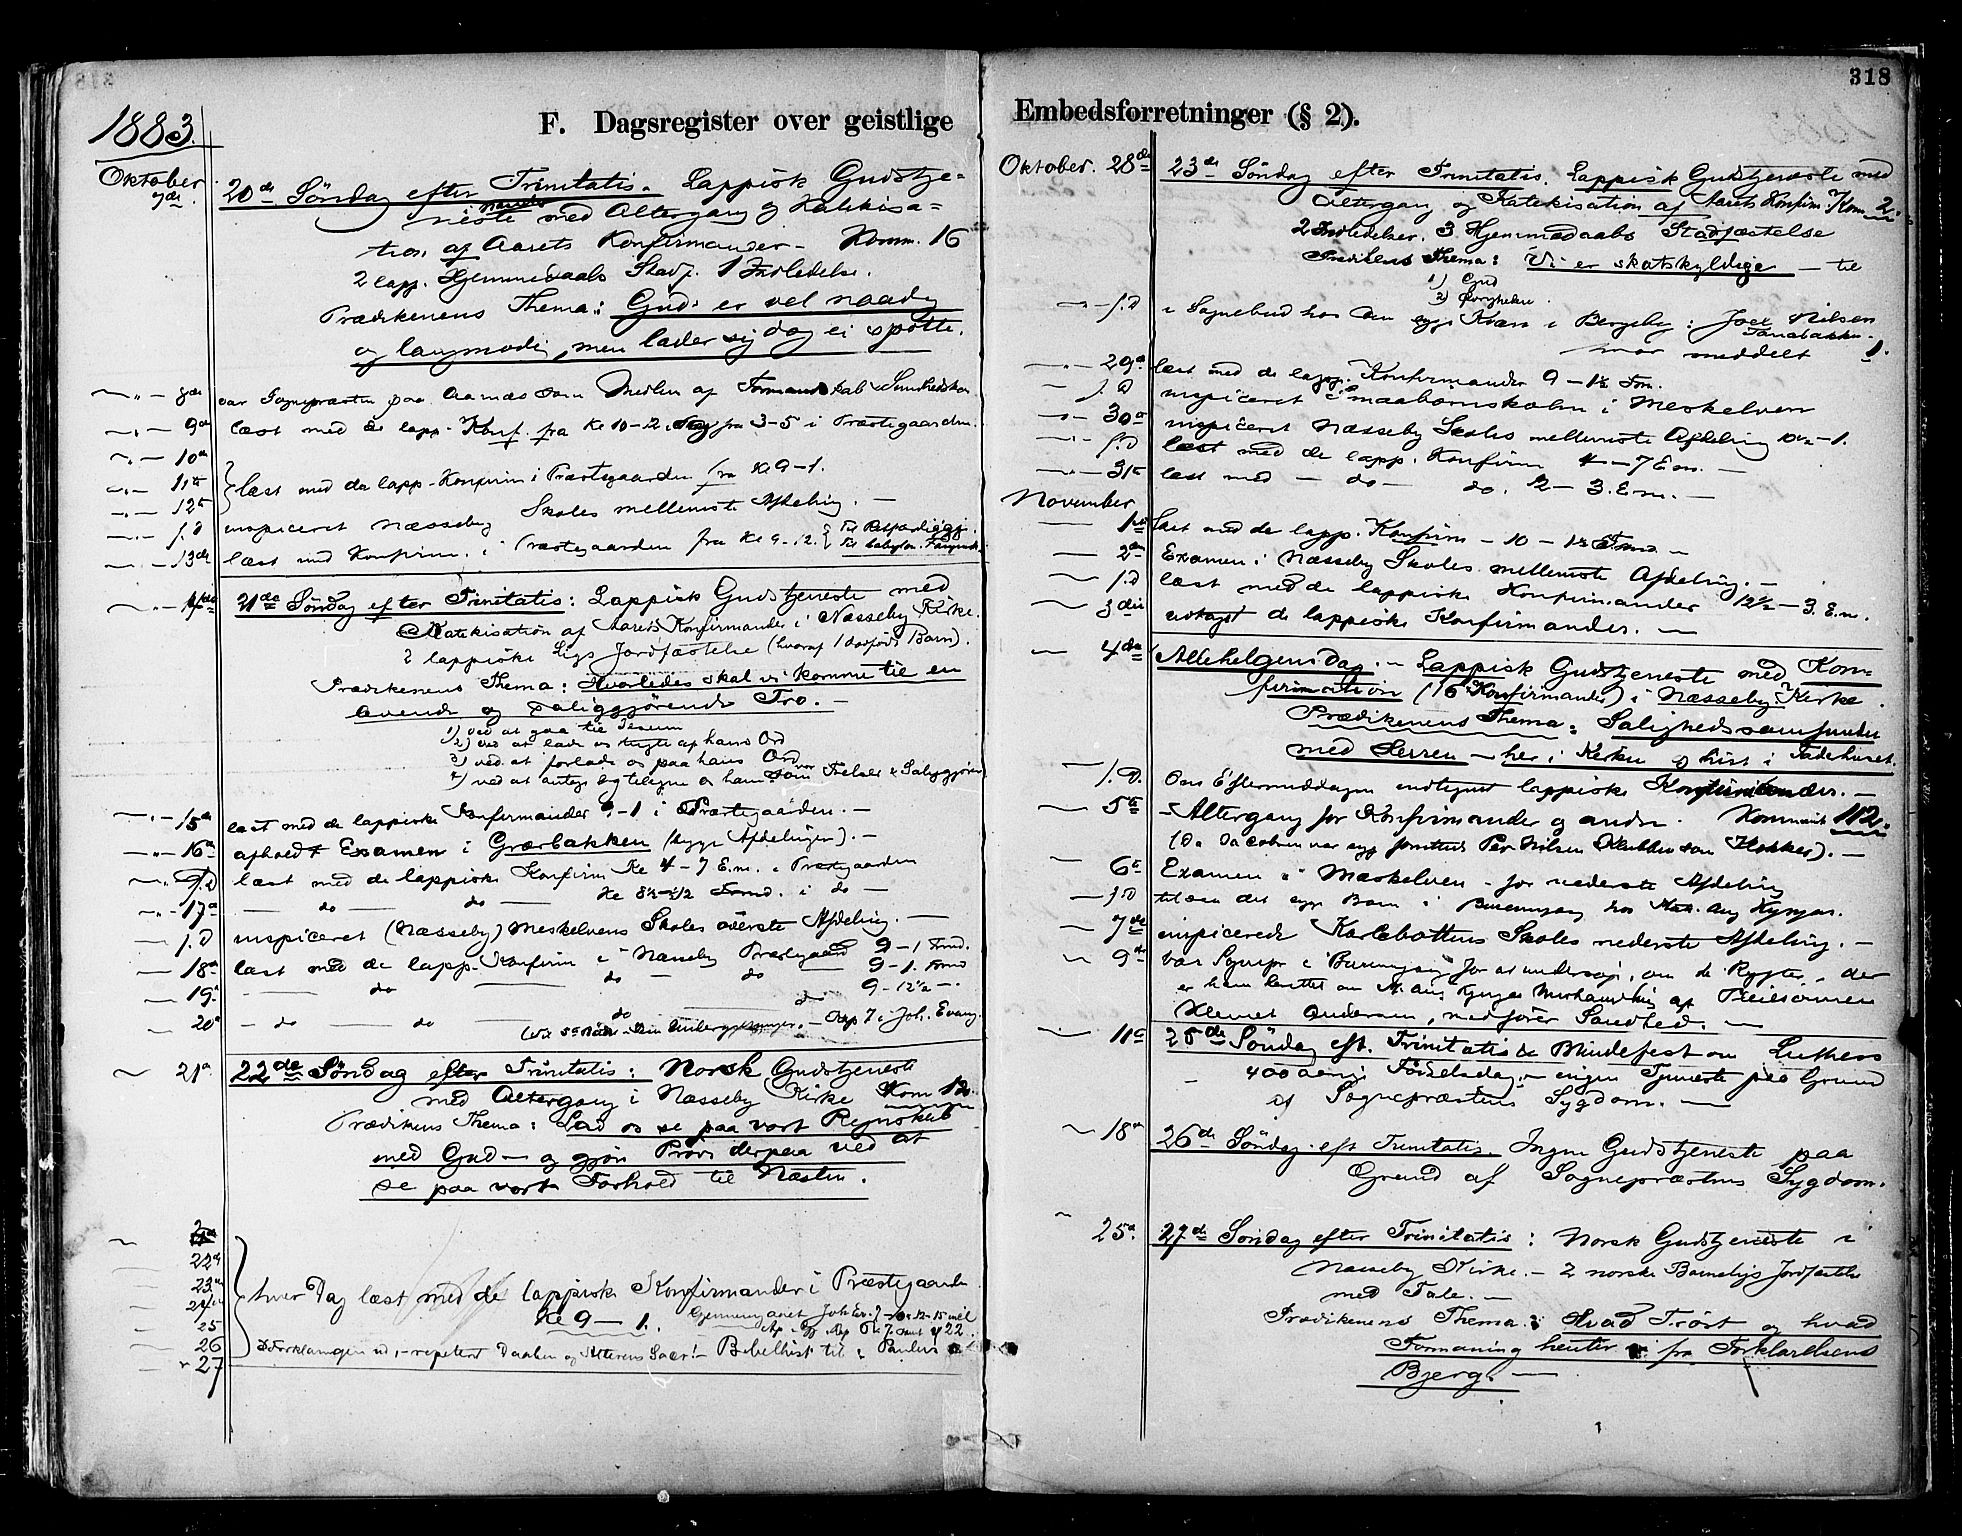 318
1883.
F. Dagsregister over geistlige
Embedsforretninger (§ 2).
Oktober
7de
20de Söndag efter Trinitatis. Lappisk Gudstje-
neste med Altergang og Katekisa-
tion af Aarets Konfirmander - Komm. 16
2 lapp. Hjemmedaabs Stadf. 1 Indledelse.
Prædikenens Thema: Gud er vel naadig
og langmodig, men lader sig dog ei spotte.
8de var Sognepræsten paa som Medlem af Formandskab
9de læst med de lapp. Konf. fra Kl 10-12. og fra 3-5 i Præstegaarden.
10de
11te læst med de lapp. Konfirm i Præstegaarden fra Kl 9-1.
12te
f. D inspiceret Næsseby Skoles mellemste Afdeling. -
13de læst med Konfirm. i Præstegaarden fra Kl 9-12.
21de Söndag efter Trinitatis: Lappisk Gudstjeneste med
Katekisation af Aarets Konfirmander i Næsseby Kirke.
2 lappiske Ligs Jordfæstelse (hvoraf 1 dødfødt Barn).
Prædikenens Thema: Hvorledes skal vi komme til en
levende og saliggjörende Tro. -
1) ved at gaa til
2) ved at lade os af hans Ord
3) ved at forlade os paa hans Ord
4) ved at og tilegne os ham som Frelser & Saliggjører
15de læst med de lappiske Konfirmander 9-1 i Præstegaarden. -
16de afholdt Examen i Græsbakken (begge Afdelinger). -
f. D læst med de lappiske Konfirm Kl 4-7 E.m. i Præstegaarden
17de - do - do - Kl Formd. i do -
f. D inspiceret (Næsseby) Meskelvens Skoles överste Afdeling. -
18de læst med de lapp. Konfirm i Næsseby Præstegaard 9-1 Fmd.
19de - do - do - do 9-1. Fmd
do 9-12½ -.
20de - do - do - do - 7 i Joh. Evang.
21de 22de Söndag efter Trinitatis: Norsk Gudstjeneste
med Altergang i Næsseby Kirke Kom 12.
Prædikens Thema: Lad os se paa vort Regnskab
med Gud - og gjör Pröve derpaa ved at
se paa vort Forhold til Næsten.
22de
23de
24de hver Dag læst med de lappiske Konfirmander i Præstegaarden
25 Kl 9 - 1. Gjennemgaaet Joh Ev.
26 Forklaringen ud, - repetert Daaben og Alterens Sacr! - Bibelhist til Paulus
27
Oktober. 28de 23de Söndag efter Trinitatis. Lappisk Gudstjeneste med
Altergang og Katekisation af Aarets Konfirm. Kom 2.
2 Indledelser. 3 Hjemmedaabs Stadfæstelse
Prædikens Thema: Vi er skatskyldige - til
1) Gud
2) Øvrigheden.
f. D i Sognebud hos den syge Kvæn i Bergeby: Joel Nilsen
meddelt 1.
29de læst med de lapp. Konfirmander 9 - 1½ Fm.
f. D inspiceret Smaabørnskolen i Meskelven
30te inspiceret Næsseby Skoles mellemste Afdeling 10½-1.
f. D læst med de lapp. Konfirm 4-7 Em. -
31te læst med - do - do. 12 - 3. E.m. -
November
1ste læst med de lapp. Konfirm - 10 - 1½ Fmd. -
2den Examen i Næsseby Skoles mellemste Afdeling. -
f. D læst med de lappiske Konfirmander 12½-3. E.m.
3die udtagst de lappiske Konfirmander. -
4de Allehelgensdag. - Lappisk Gudstjeneste med Kon-
firmation (16 Konfirmander) i Næsseby Kirke.
Prædikenens Thema: Salighedssamfundet
med Herren - her i Kirken og hist i Faderhuset.
f. D. Om Eftermiddagen lappiske Konfirmander. -
5te - Altergang for Konfirmander og andre. Kommunik 112.
var syg Per Nilsen som Klokker). -
6te Examen i Meskelven - for nederste Afdeling
f. D tilsaa det syge Barn i hos
7de inspicerede Karlebottens Skoles nederste Afdeling. -
9de var Sognepr i for at undersøge, om de Rygter, der
er ham berettet om af
Andersen, medfører Sandhed. -
11te 25de Söndag eft. Trinitatis & Mindefest om Luthers
400 aarige Födselsdag. - ingen Tjeneste paa Grund
af Sognepræstens Sygdom. -
18de 26de Söndag eft Trinitatis. Ingen Gudstjeneste paa
Grund af Sognepræstens Sygdom.
25de 27de Söndag efter Trinitatis: Norsk Gudstjeneste i
Næsseby Kirke. - 2 norske Barneligs Jordfæstelse
med Tale. -
Prædikenens Thema: Hvad Tröst og hvad
Formaning henter vi fra Forklarelsens
Bjerg. -